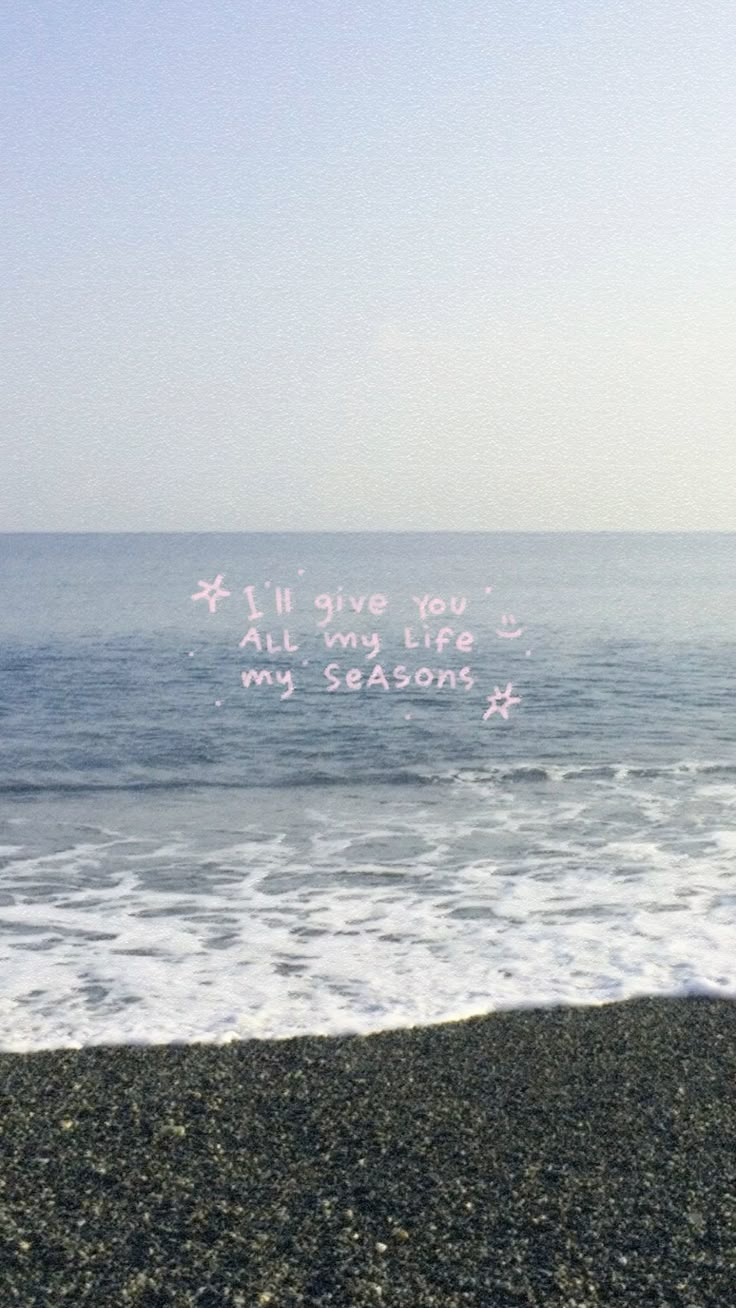 I'll give You
ALL my Life
my SeAsons